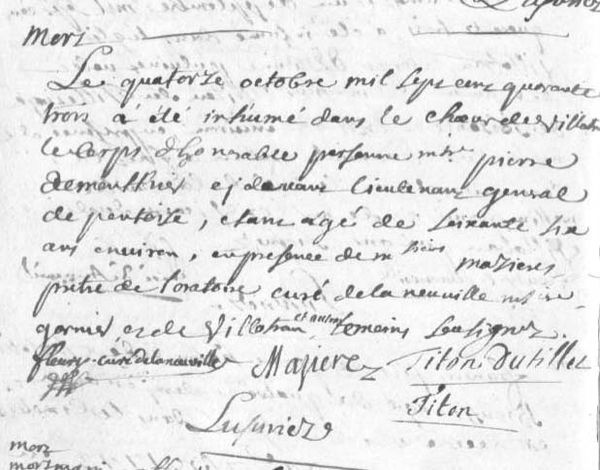 mort
Le quatorze octobre mil sept cent quarante
trois à été inhumé dans le choeur de villotr
le corps d'honorable personne mtre pierre
demonthiers cy devant lieutenant general
de pontoise, etant agé de soixante six
ans environ, en presence de mtres mazieres
prêtre de l'oratoire curé de la neuville
garnier et de Villotran et autres temoins soussignez.
fleury curé de la neuville Mazierez Titon Dutillet
Titon
mort